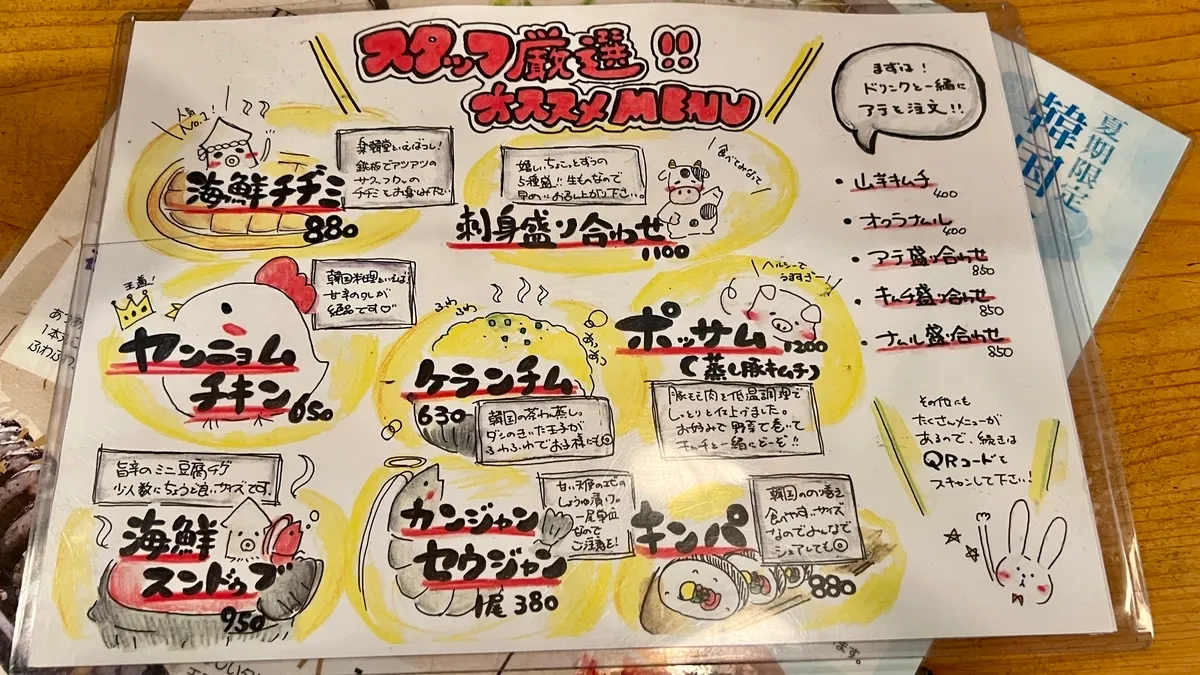 スタッフ厳選!!
オススメMENU
まずは!
ドリンクと一緒に
アテを注文!!
人気
No.1
海鮮チヂミ
880
楽韓堂といえばコレ!
鉄板でアツアツの
サクフワの
チヂミをお召し下さい
嬉しいちょこっとずつの
5種盛!!生ものなので
早めにお召し上がり下さい。
食べてみなって
刺身盛り合わせ
1100
・山芋キムチ
400
・オクラナムル
400
・アテ盛り合わせ
850
・キムチ盛り合わせ
850
・ナムル盛り合わせ
850
王道!
韓国料理といえば!
甘辛のタレが
絶品です♡
ヤンニョム
チキン 650
ふわ
ふわ
ケランチム
630
韓国の茶わん蒸し。
ダシのきいた玉子が
ふわふわでお子様にも◎
ヘルシーで
うますぎー
ポッサム
1200
(蒸し豚キムチ)
豚もも肉を低温調理で
しっとりと仕上げました。
お好みで野菜で巻いて
キムチと一緒にどーぞ!!
旨辛のミニ豆腐チゲ
少人数にちょうど良いサイズです。
海鮮
スンドゥブ
950
カンジャン
セウジャン
1尾 380
甘い天使のエビの
しょうゆ漬け。
一尾単位
なので
ご注意を!
キンパ
880
韓国ののり巻き
食べやすいサイズ
なのでみんなで
シェアしても◎
その他にも
たくさんメニューが
あるので、続きは
QRコードを
スキャンして下さい!
夏期限定
韓国